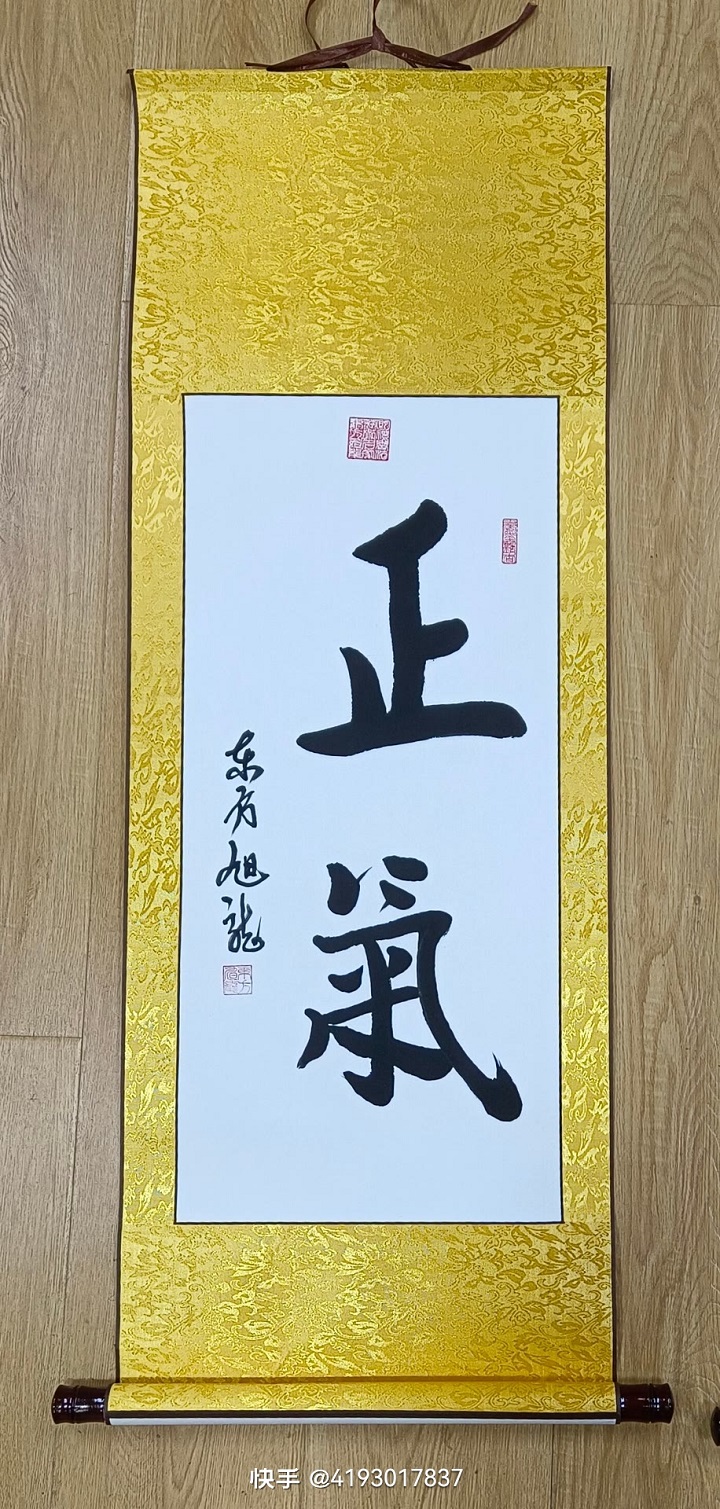 正氣
东方旭龙
快手 @4193017837